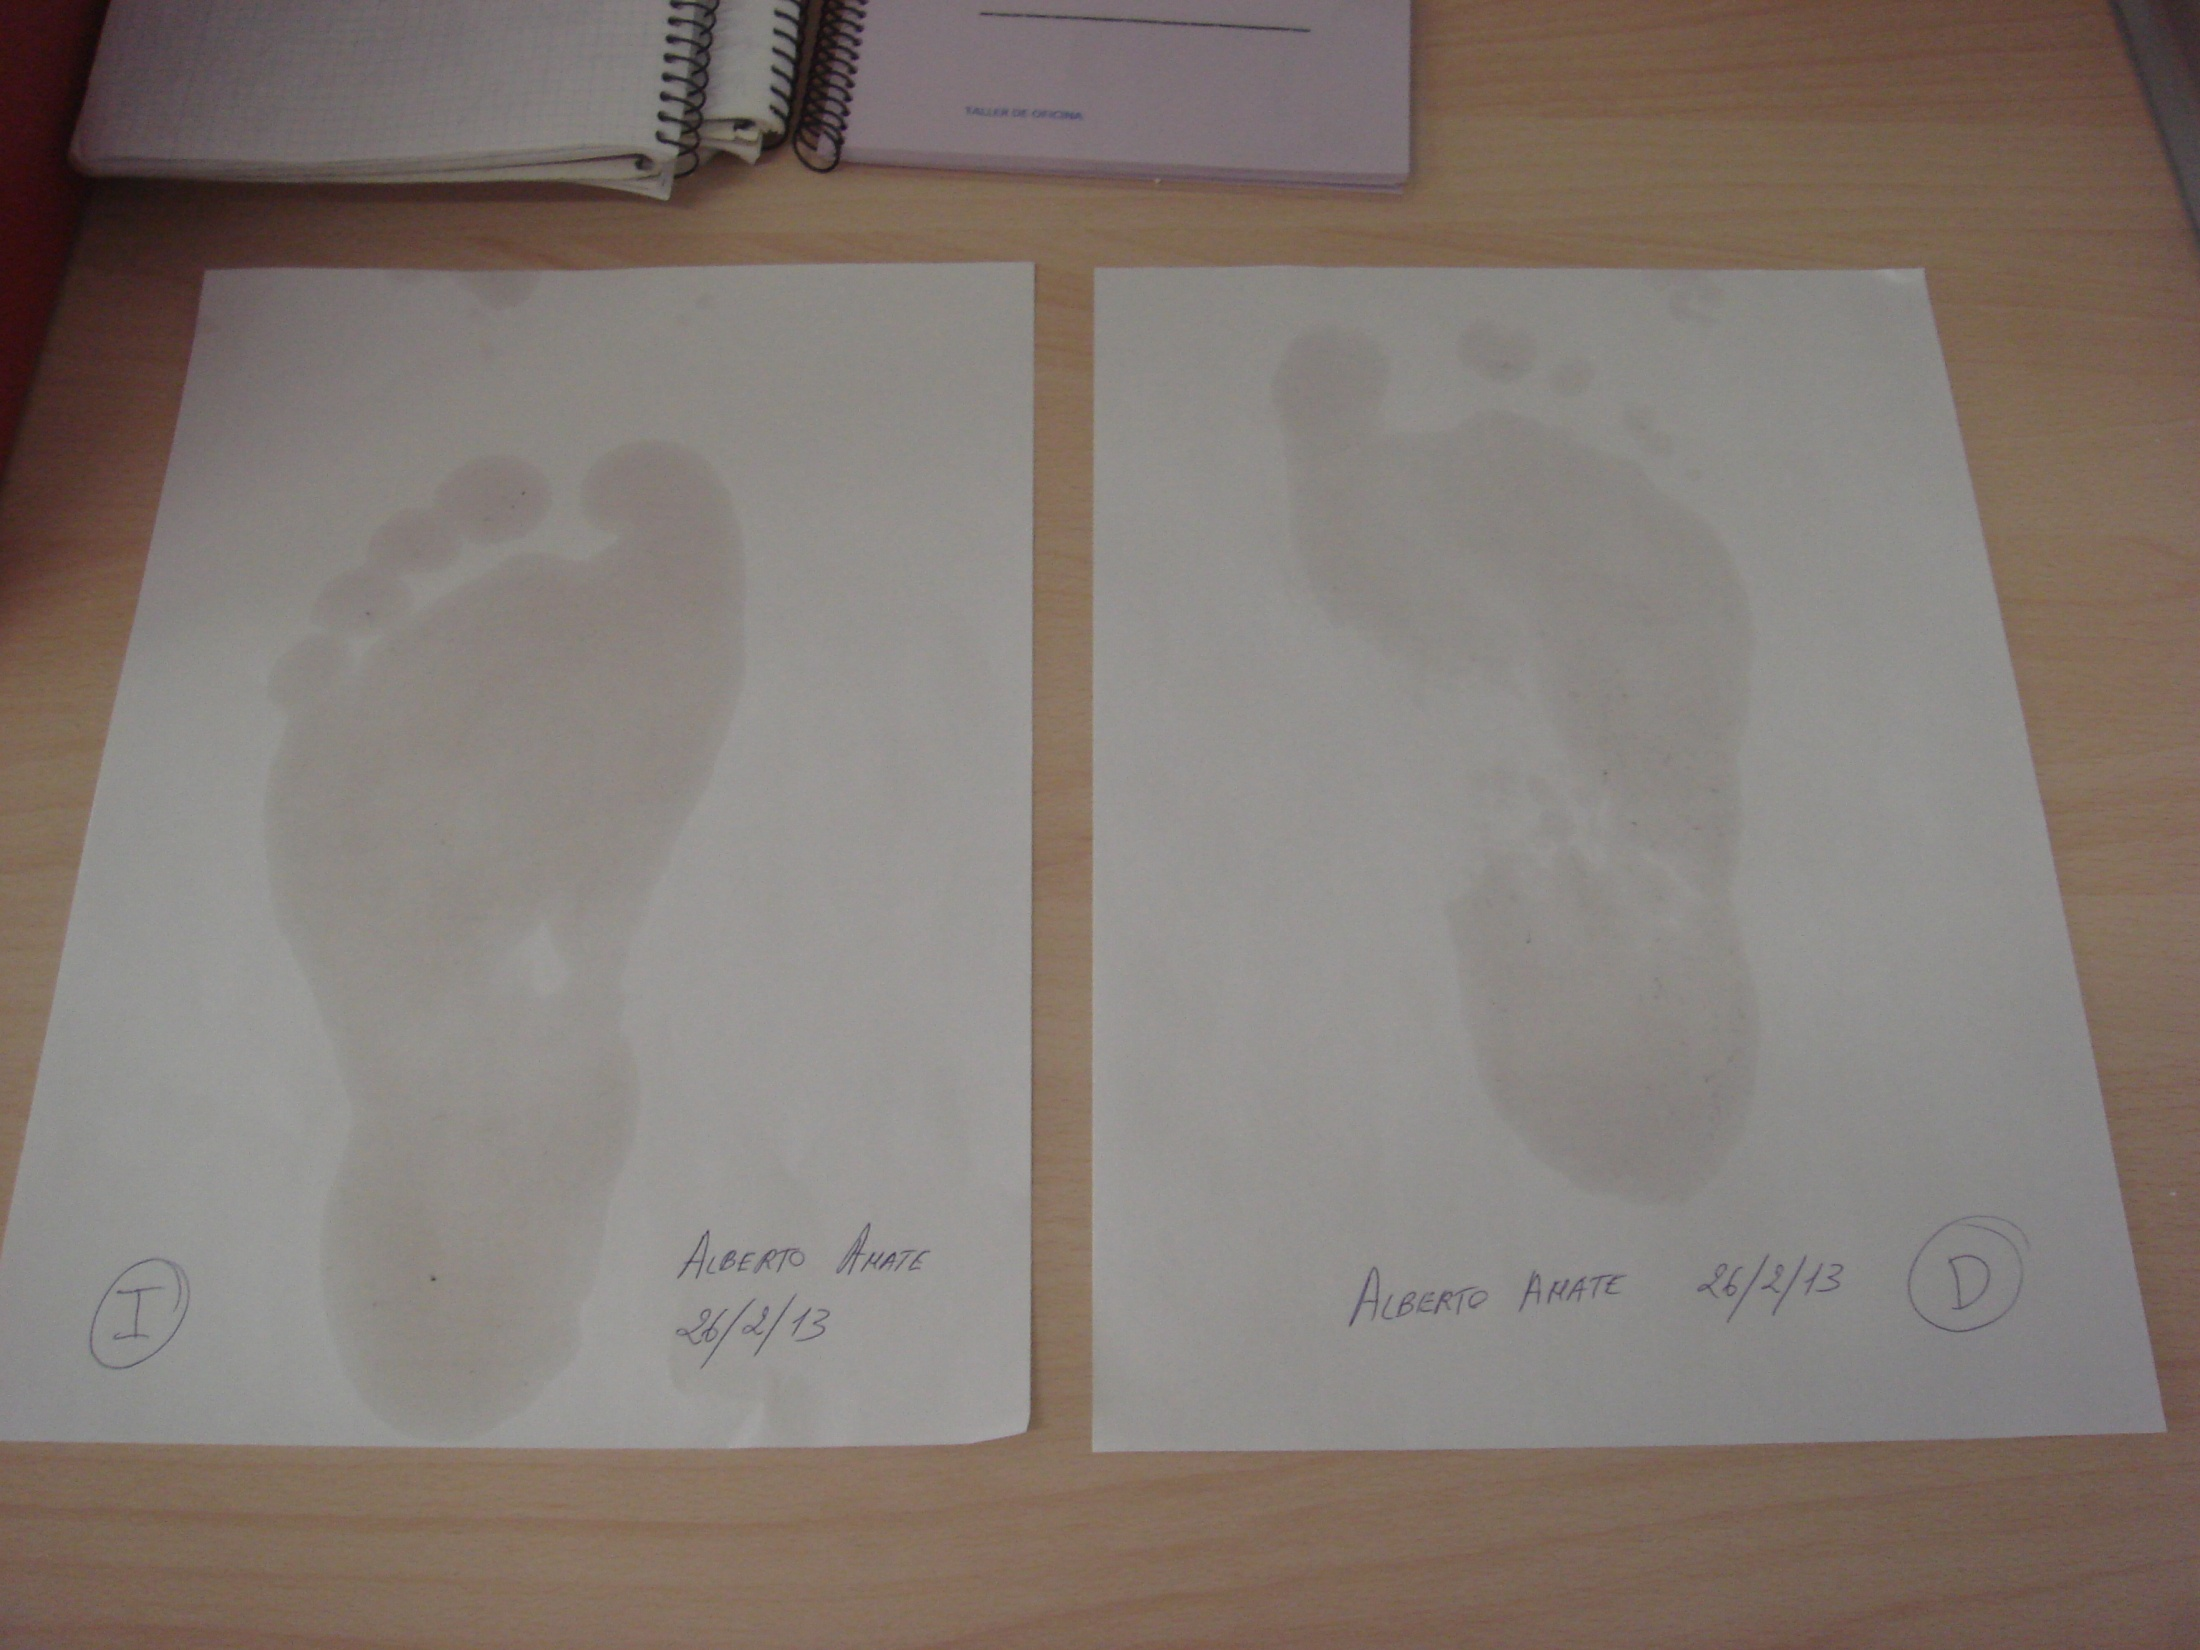 TALLER DE OFICINA
I
ALBERTO AMATE
26/2/13
ALBERTO AMATE 26/2/13 D